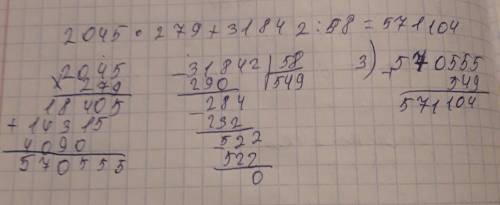 2045 • 279 + 31842 : 58 = 571104
2045
× 279
18405
+ 14315
4090
570555
- 31842 | 58
290 | 549
- 284
232
- 522
522
0
3) - 570555
549
571104